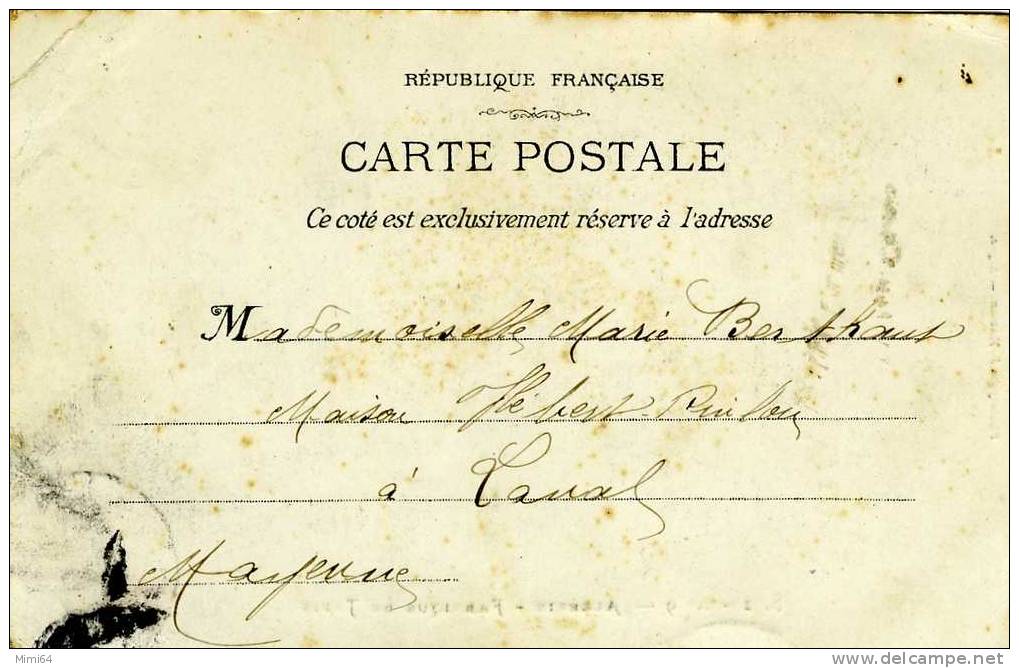 RÉPUBLIQUE FRANÇAISE
CARTE POSTALE
Ce coté est exclusivement réserve à l'adresse
Mademoiselle Marie Berthaut
Maison Hébert
à Laval
Mayenne
Mimi64
delcampe.net